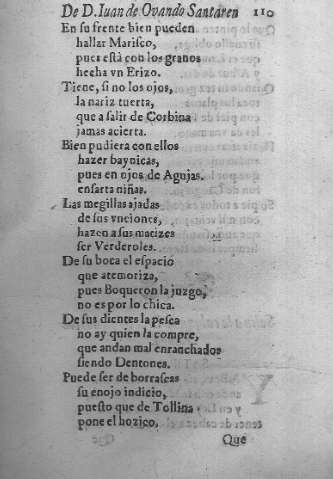 De D. Iuan de Ovando Santaren 110
En su frente bien pueden
hallar Marisco,
pues està con los granos
hecha vn Erizo.
Tiene, si no los ojos,
la nariz tuerta,
que a salir de Corbina
jamas acierta.
Bien pudiera con ellos
hazer baynicas,
pues en ojos de Agujas.
ensarta niñas.
Las megillas ajadas
de sus vnciones,
hazen a sus matizes
ser Verderoles.
De su boca el espacio
que atemoriza,
pues Boqueron la juzgo,
no es por lo chica.
De sus dientes la pesca
no ay quien la compre,
que andan mal enranchados
siendo Dentones.
Puede ser de borrascas
su enojo indicio,
puesto que de Tollina
pone el hozico,
Que